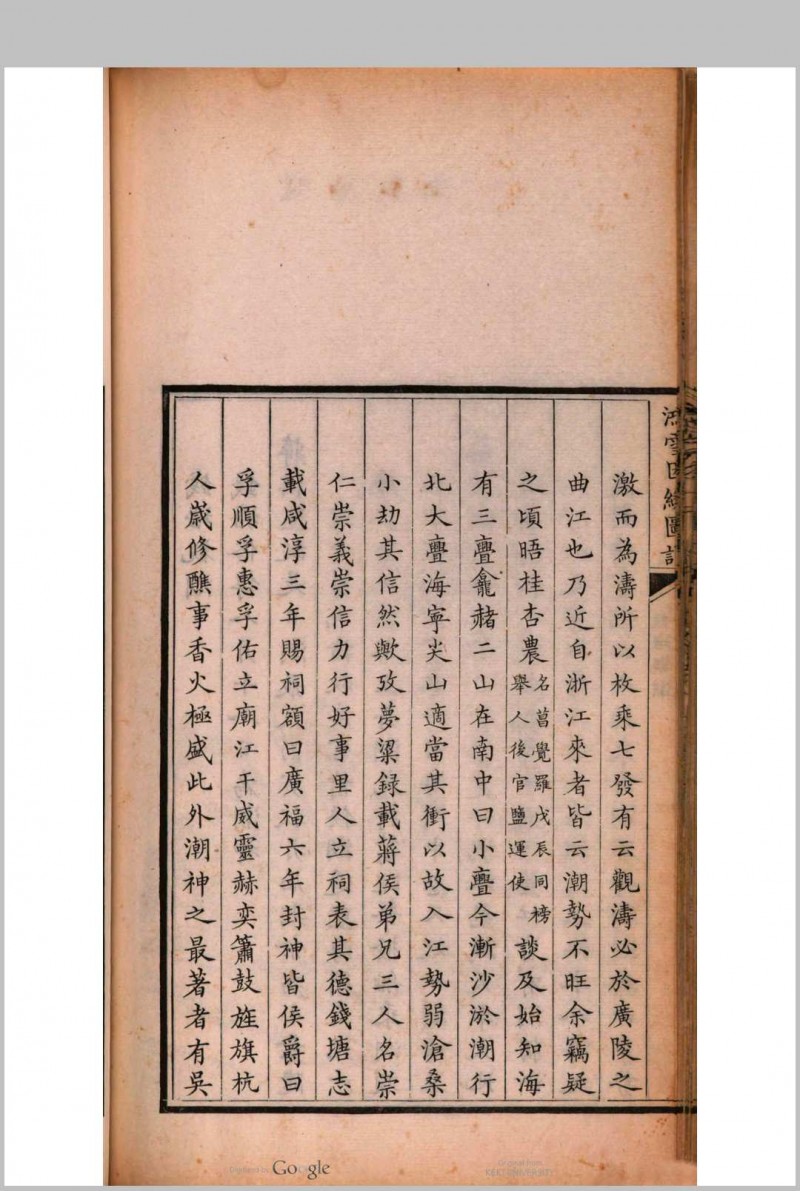 鴻雪因緣圖記
激而為濤所以枚乘七發有云觀濤必於廣陵之
曲江也乃近自浙江來者皆云潮勢不旺余竊疑
之頃晤桂杏農名菖覺羅戊辰同榜舉人後官鹽運使談及始知海
有三亹龕赭二山在南中曰小亹今漸沙淤潮行
北大亹海寧尖山適當其衝以故入江勢弱滄桑
小劫其信然歟攷夢粱錄載蔣侯弟兄三人名崇
仁崇義崇信力行好事里人立祠表其德錢塘志
載咸淳三年賜祠額曰廣福六年封神皆侯爵曰
孚順孚惠孚佑立廟江干威靈赫奕簫鼓旌旗杭
人歲修醮事香火極盛此外潮神之最著者有吳
Digitized by Google
Original from